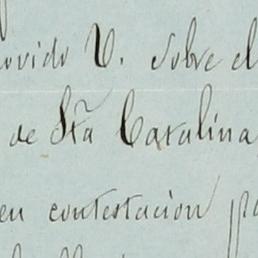 ovido V. sobre el
de Sta Catalina
en contestacion pa